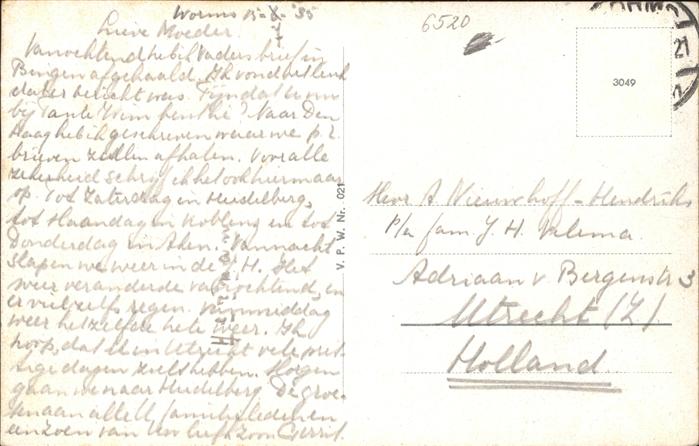 Worms 15-8-'35
Lieve Moeder.
Vanochtend heb ik Vaders brief in
Bingen afgehaald. Ik vond het leuk
dat er bericht was. Fijn dat U nu
bij Tante Wim bent hè? Naar Den
Haag heb ik geschreven waar we p.r.
brieven zullen afhalen. Voor alle
zekerheid schrijf ik het ook hier maar
op. Tot Zaterdag in Heidelberg,
tot Maandag in Koblenz en tot
Donderdag in Aken. Vannacht
slapen we weer in de J.H. Het
weer veranderde vanochtend, en
er viel zelfs regen. Vanmiddag
weer hetzelfde hele weer. Ik
hoop, dat U in Utrecht vele pret-
tige dagen zult hebben. Morgen
gaan we naar Heidelberg. De groe-
ten aan alle familieleden en
een zoen van Uw liefh. zoon Gerrit.
6520
21
3049
V. P. W. Nr. 021
Mevr A Nieuwhoff-Hendriks
p/a fam. J. H. Velema
Adriaan v Bergenstr 3
Utrecht (Z).
Holland.